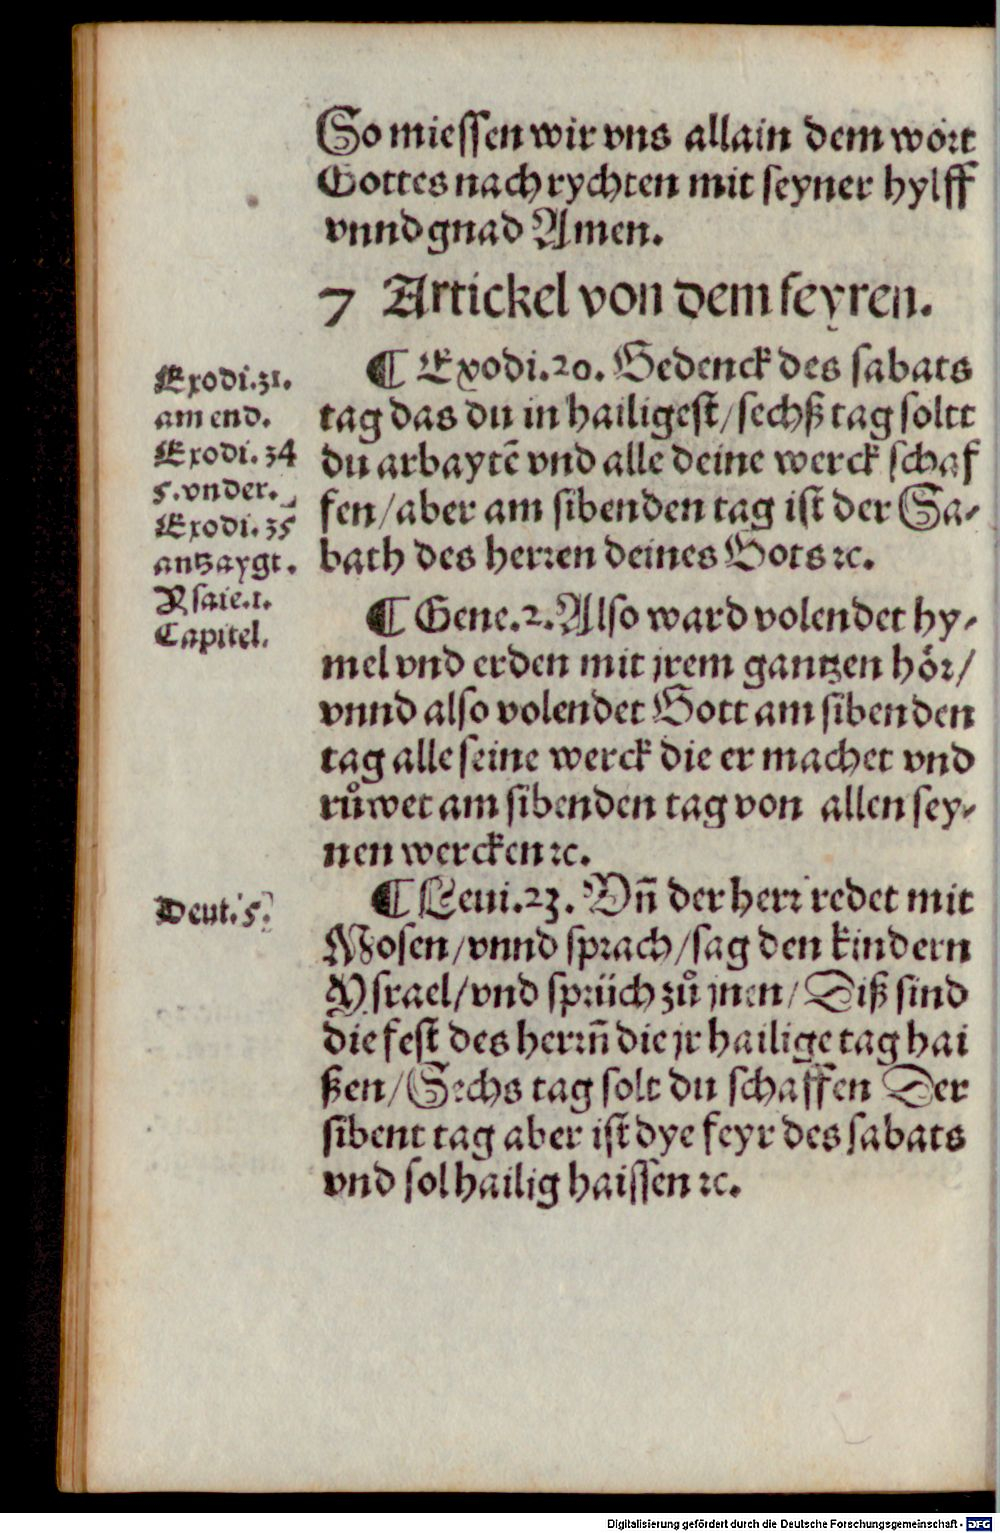 So miessen wir vns allain dem wort
Gottes nach rychten mit seyner hylff
vnnd gnad Amen.
7 Artickel von dem feyren.
¶ Exodi.20. Gedenck des sabats
tag das du in hailigest/sechß tag soltt
du arbaytē vnd alle deine werck schaf
fen/aber am sibenden tag ist der Sa⸗
bath des herren deines Gots ꝛc.
Exodi.31.
am end.
Exodi. 34
5.vnder.
Exodi. 35
antzaygt.
Ysaie.1.
Capitel.
¶ Gene.2. Also ward volendet hy⸗
mel vnd erden mit jrem gantzen hör/
vnnd also volendet Gott am sibenden
tag alle seine werck die er machet vnd
růwet am sibenden tag von allen sey⸗
nen wercken ꝛc.
Deut.5.
¶ Leui.23. Vn̄ der herr redet mit
Mosen/vnnd sprach/sag den kindern
Ysrael/vnd sprüch zů jnen/Diß sind
die fest des herrn̄ die jr hailige tag hai
ßen/Sechs tag solt du schaffen Der
sibent tag aber ist dye feyr des sabats
vnd sol hailig haissen ꝛc.
Digitalisierung gefördert durch die Deutsche Forschungsgemeinschaft - DFG